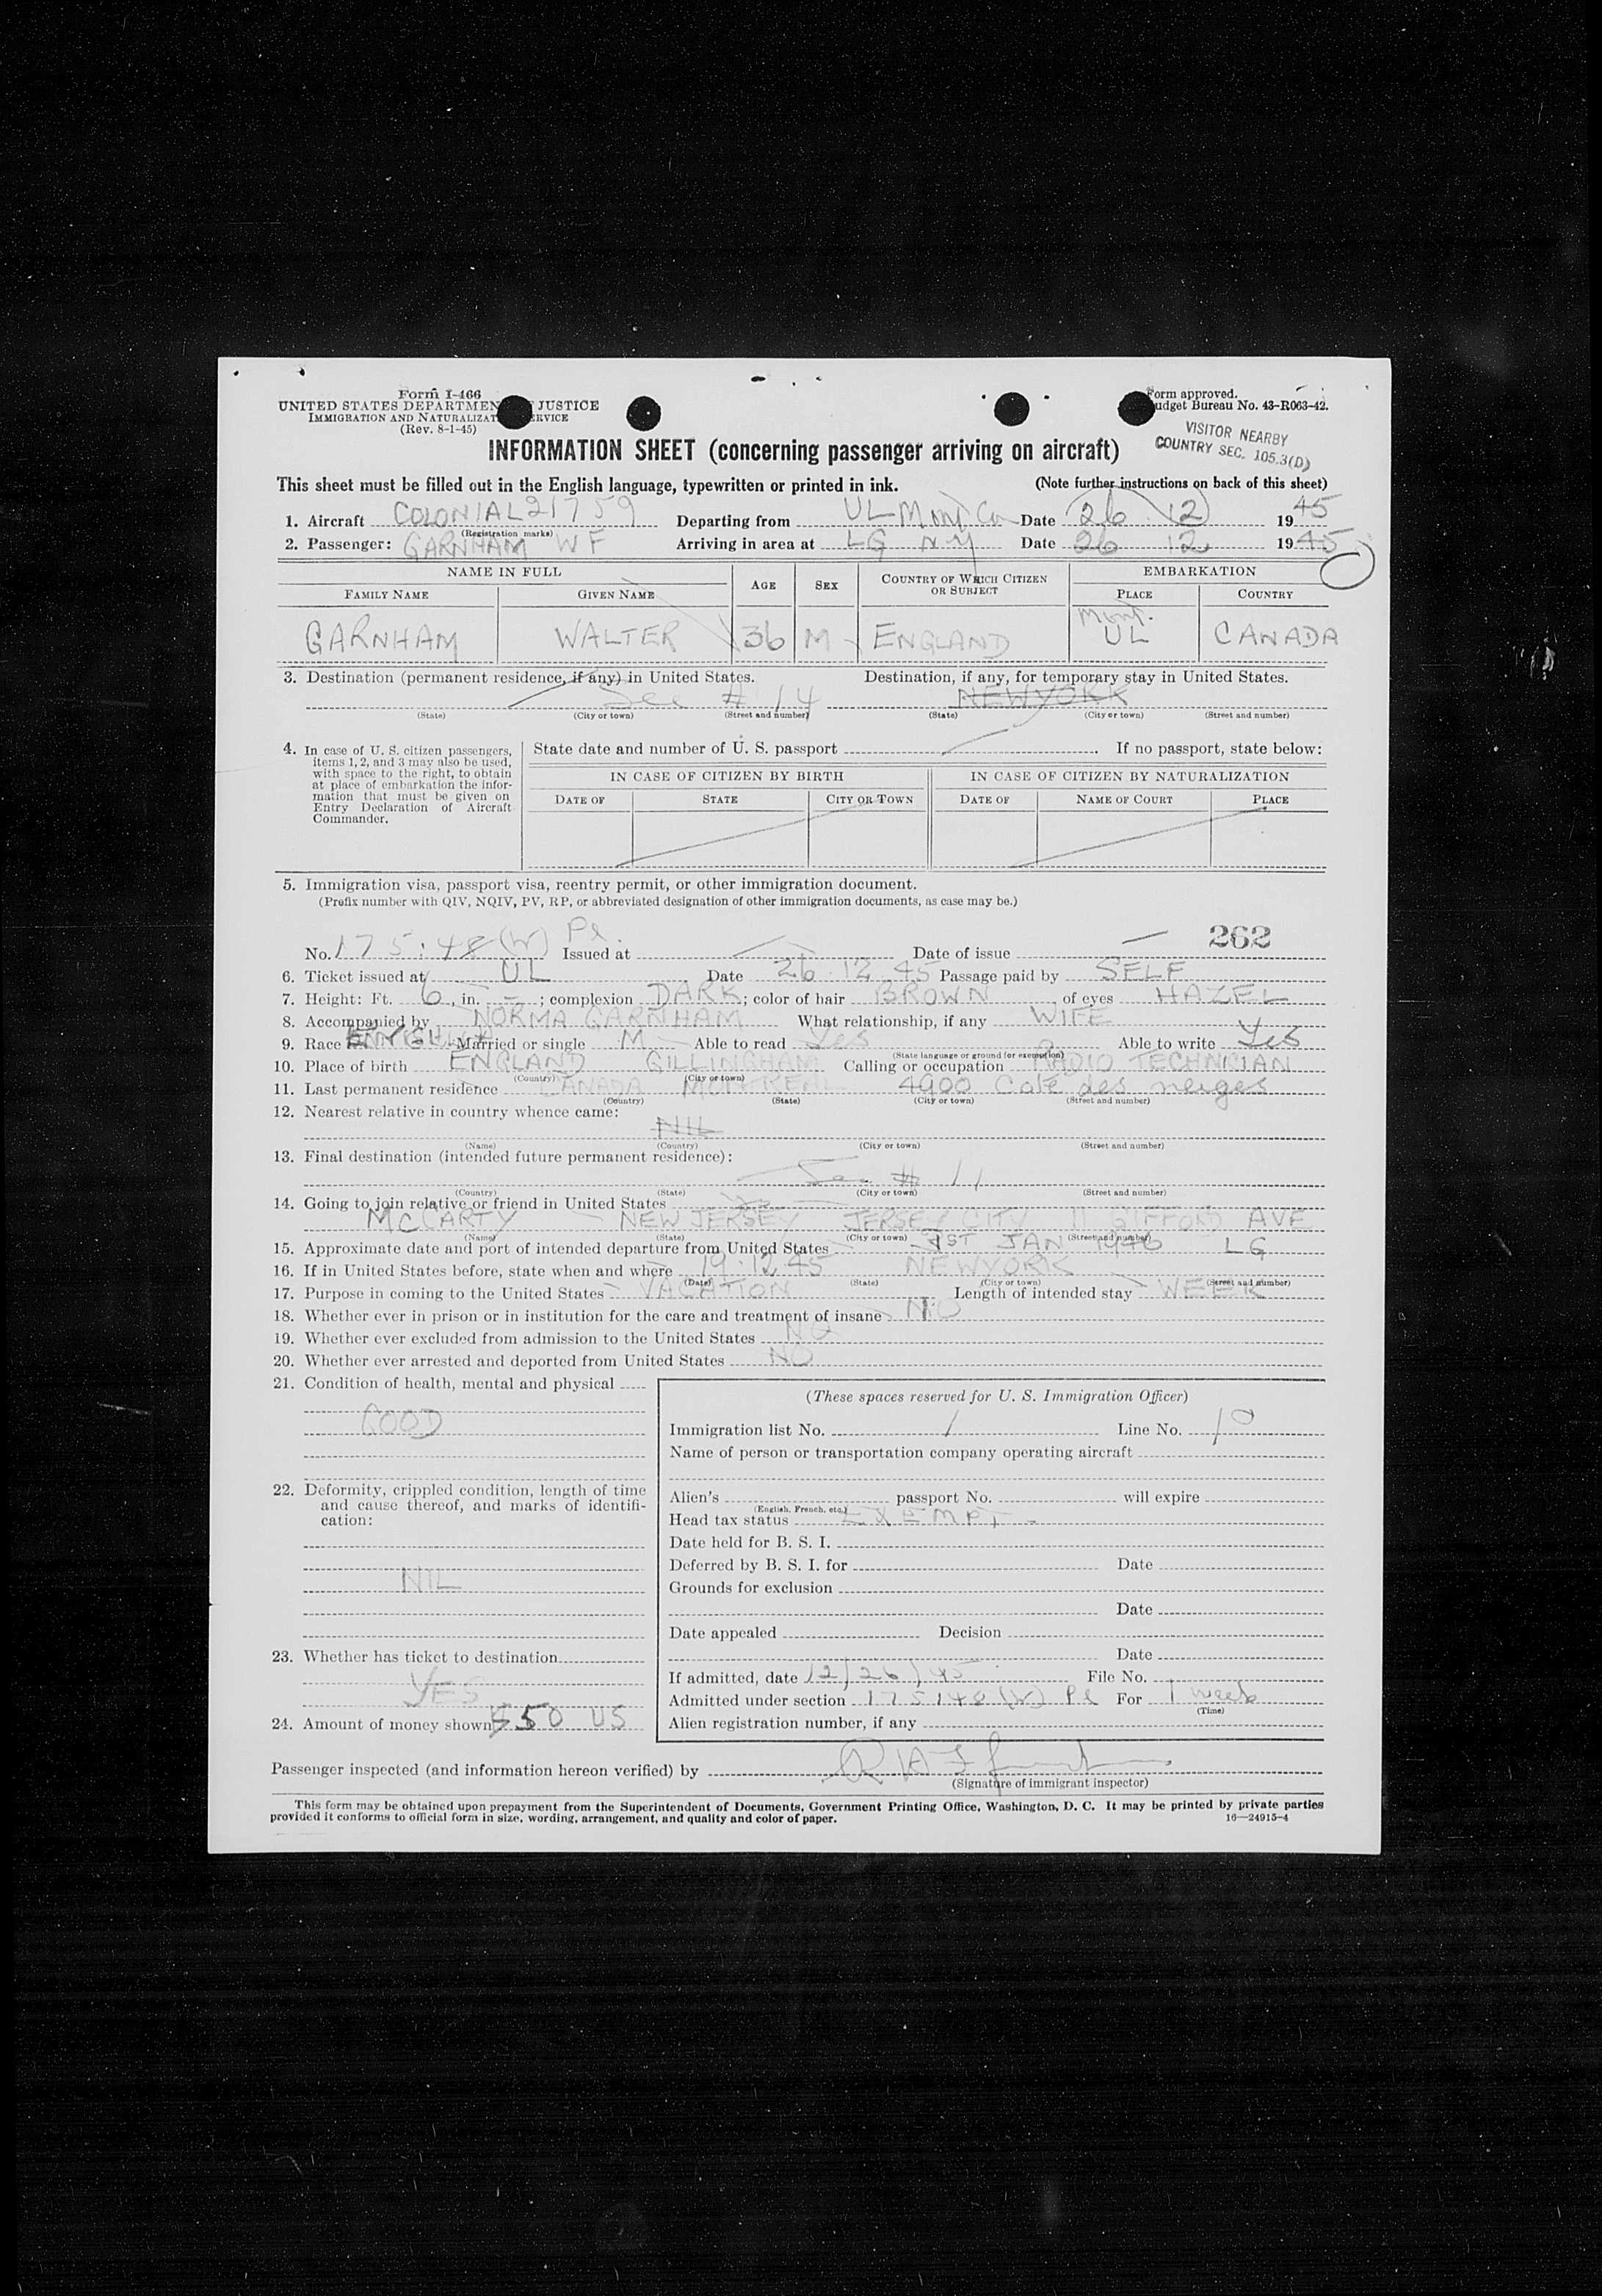 Form I-466
UNITED STATES DEPARTMENT JUSTICE
IMMIGRATION AND NATURALIZAT ERVICE
(Rev. 8-1-45)
Form approved.
udget Bureau No. 43-R063-42.
VISITOR NEARBY
COUNTRY SEC. 105.3(D)
INFORMATION SHEET (concerning passenger arriving on aircraft)
This sheet must be filled out in the English language, typewritten or printed in ink. (Note further instructions on back of this sheet)
1. Aircraft COLONIAL 21759 Departing from UL Mont Can Date 26 12 1945
(Registration marks)
2. Passenger: GARNHAM W F Arriving in area at LG NY Date 26 12 1945
NAME IN FULL AGE SEX COUNTRY OF WHICH CITIZEN OR SUBJECT EMBARKATION
FAMILY NAME GIVEN NAME PLACE COUNTRY
GARNHAM WALTER 36 M ENGLAND Mont. UL CANADA
3. Destination (permanent residence, if any) in United States. Destination, if any, for temporary stay in United States.
See # 14 NEW YORK
(State) (City or town) (Street and number) (State) (City or town) (Street and number)
4. In case of U. S. citizen passengers, items 1, 2, and 3 may also be used, with space to the right, to obtain at place of embarkation the information that must be given on Entry Declaration of Aircraft Commander.
State date and number of U. S. passport . If no passport, state below:
IN CASE OF CITIZEN BY BIRTH IN CASE OF CITIZEN BY NATURALIZATION
DATE OF STATE CITY OR TOWN DATE OF NAME OF COURT PLACE
5. Immigration visa, passport visa, reentry permit, or other immigration document.
(Prefix number with QIV, NQIV, PV, RP, or abbreviated designation of other immigration documents, as case may be.)
262
No. 175:48 (W) Pl. Issued at Date of issue
6. Ticket issued at UL Date 26 12 45 Passage paid by SELF
7. Height: Ft. 6, in. –; complexion DARK; color of hair BROWN, of eyes HAZEL
8. Accompanied by NORMA GARNHAM What relationship, if any WIFE
9. Race ENGLISH Married or single M Able to read Yes Able to write Yes
(State language or ground for exemption)
10. Place of birth ENGLAND GILLINGHAM Calling or occupation RADIO TECHNICIAN
(Country) (City or town)
11. Last permanent residence CANADA MONTREAL 4900 Cote des neiges
(Country) (State) (City or town) (Street and number)
12. Nearest relative in country whence came:
NIL
(Name) (Country) (City or town) (Street and number)
13. Final destination (intended future permanent residence):
See # 11
(Country) (State) (City or town) (Street and number)
14. Going to join relative or friend in United States
McCARTY NEW JERSEY JERSEY CITY 11 GIFFORD AVE
(Name) (State) (City or town) (Street and number)
15. Approximate date and port of intended departure from United States 1ST JAN 1946 LG
16. If in United States before, state when and where 19.12.45 NEW YORK
(Date) (State) (City or town) (Street and number)
17. Purpose in coming to the United States VACATION Length of intended stay WEEK
18. Whether ever in prison or in institution for the care and treatment of insane NO
19. Whether ever excluded from admission to the United States NO
20. Whether ever arrested and deported from United States NO
21. Condition of health, mental and physical
GOOD
22. Deformity, crippled condition, length of time and cause thereof, and marks of identification:
NIL
23. Whether has ticket to destination
YES
24. Amount of money shown $50 US
(These spaces reserved for U. S. Immigration Officer)
Immigration list No. 1 Line No. 10
Name of person or transportation company operating aircraft
Alien's passport No. will expire
(English, French, etc.)
Head tax status EXEMPT
Date held for B. S. I.
Deferred by B. S. I. for Date
Grounds for exclusion
Date
Date appealed Decision
Date
If admitted, date 12/26/45 File No.
Admitted under section 175148 (W) Pl For 1 week
(Time)
Alien registration number, if any
Passenger inspected (and information hereon verified) by
(Signature of immigrant inspector)
This form may be obtained upon prepayment from the Superintendent of Documents, Government Printing Office, Washington, D. C. It may be printed by private parties
provided it conforms to official form in size, wording, arrangement, and quality and color of paper. 16—24915-4